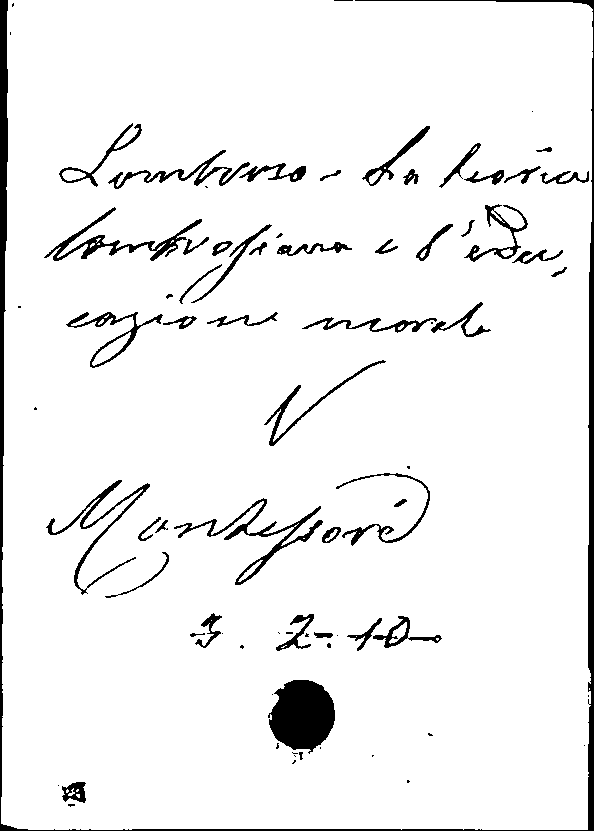 Lombroso - La teoria
lombrosiana e l'edu,
cazione morale
V
Montessori
3. 2. 10